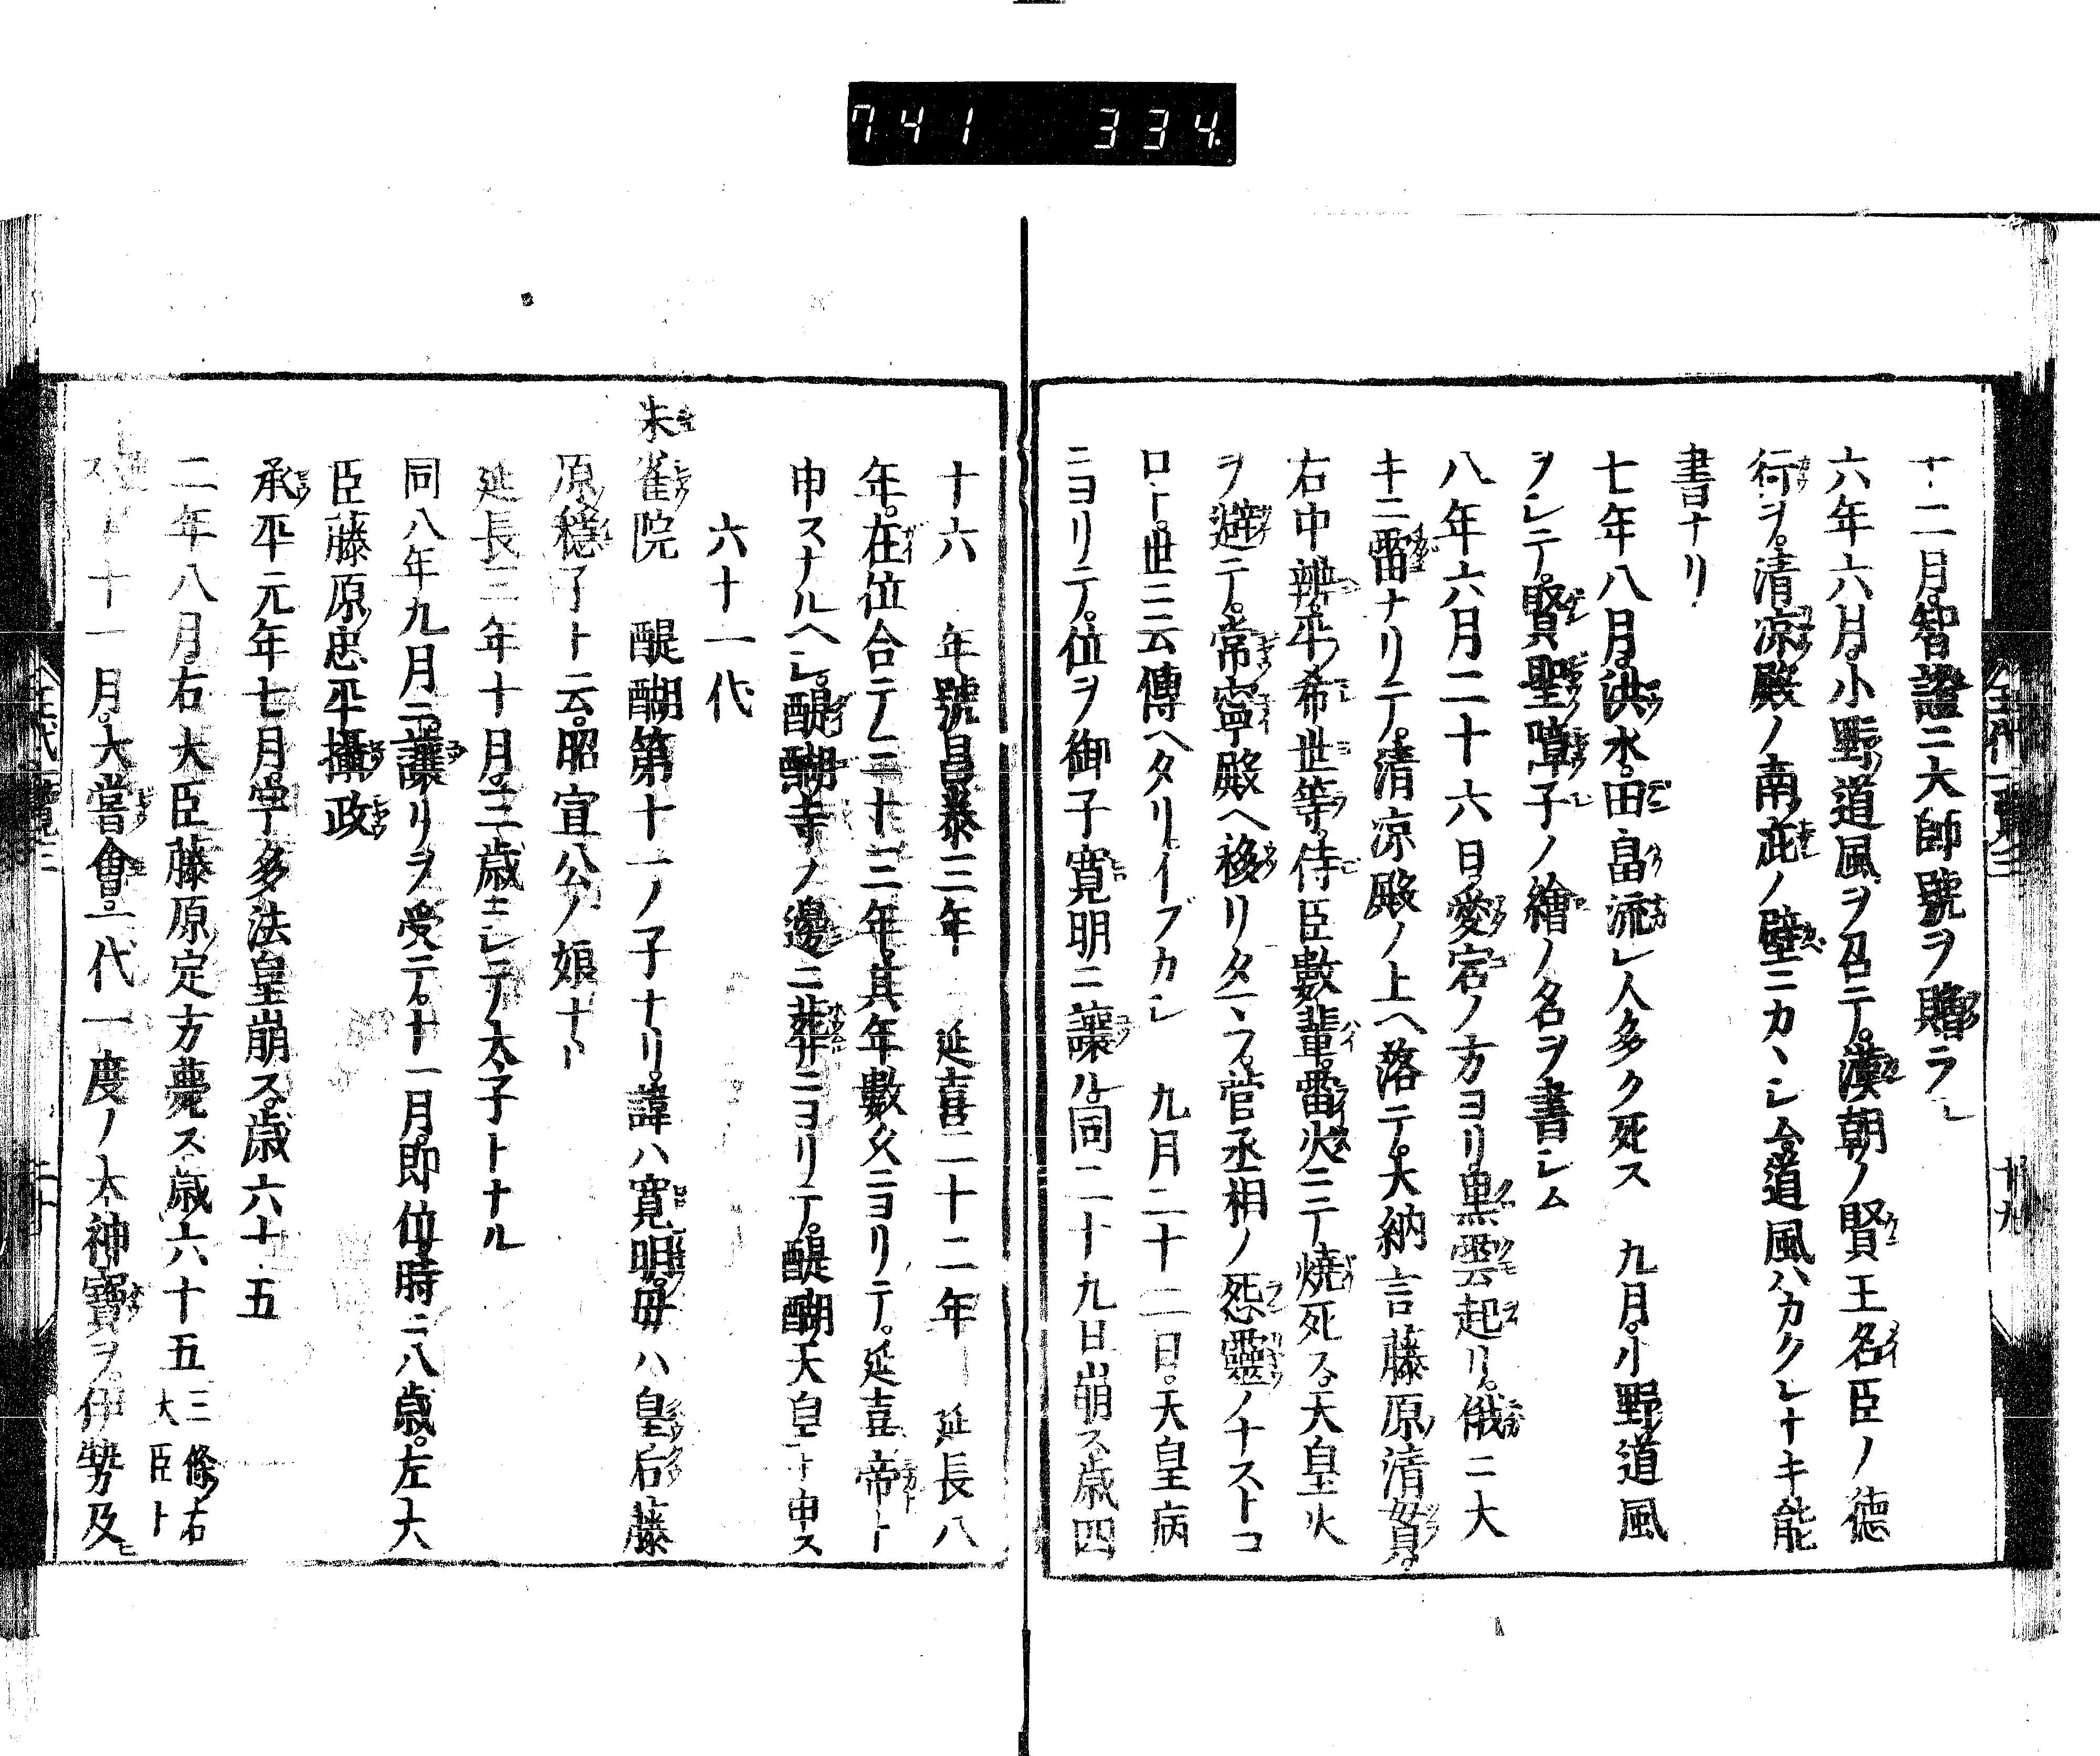 741 334.
十二月。智證ニ大師號ヲ贈ラレ
六年六月。小野道風ヲ召テ。漢朝ノ賢王名臣ノ德
行ヲ。清凉殿ノ南庇ノ壁ニカヽシム道風ハカクレナキ能
書ナリ
七年八月。洪水。田畠流レ人多ク死ス 九月。小野道風
ヲシテ。賢聖障子ノ繪ノ名ヲ書シム
八年六月二十六日。愛宕ノ方ヨリ黒雲起リ。俄ニ大
キニ雷ナリテ。清凉殿ノ上ヘ落テ。大納言藤原清貫。
右中辨。平希世等。侍臣數輩。雷火ニテ燒死ス。天皇火
ヲ避テ。常寧殿ヘ移リタマフ。菅丞相ノ怨靈ノナストコ
ロト。世ニ云傳ヘタリ。イブカシ 九月二十二日。天皇病
ニヨリテ。位ヲ御子寛明ニ讓ル。同二十九日崩ス歳四
十六 年號昌泰三年 延喜二十二年 延長八
年。在位合テ三十三年。其年數久ニヨリテ。延喜帝ト
申スナルヘシ。醍醐寺ノ邊ニ葬ニヨリテ。醍醐天皇ト申ス
六十一代
朱雀院 醍醐第十一ノ子ナリ。諱ハ寛明。母ハ皇后藤
原穩子ト云。昭宣公ノ娘ナリ
延長三年十月。三歳ニシテ太子トナル
同八年九月ニ讓リヲ受テ。十一月。即位時ニ八歳。左大
臣藤原忠平攝政
承平元年七月。宇多法皇崩ス。歳六十五
二年八月。右大臣藤原定方薨ス歳六十五 三條右
大臣ト
十一月。大嘗會。一代一度ノ大神寶ヲ。伊勢及